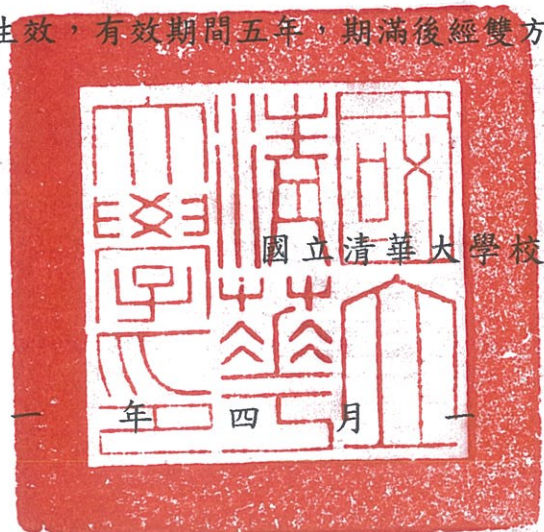 生效，有效期間五年，期滿後經雙方
國立
清華
大學印
國立清華大學校
一年四月一